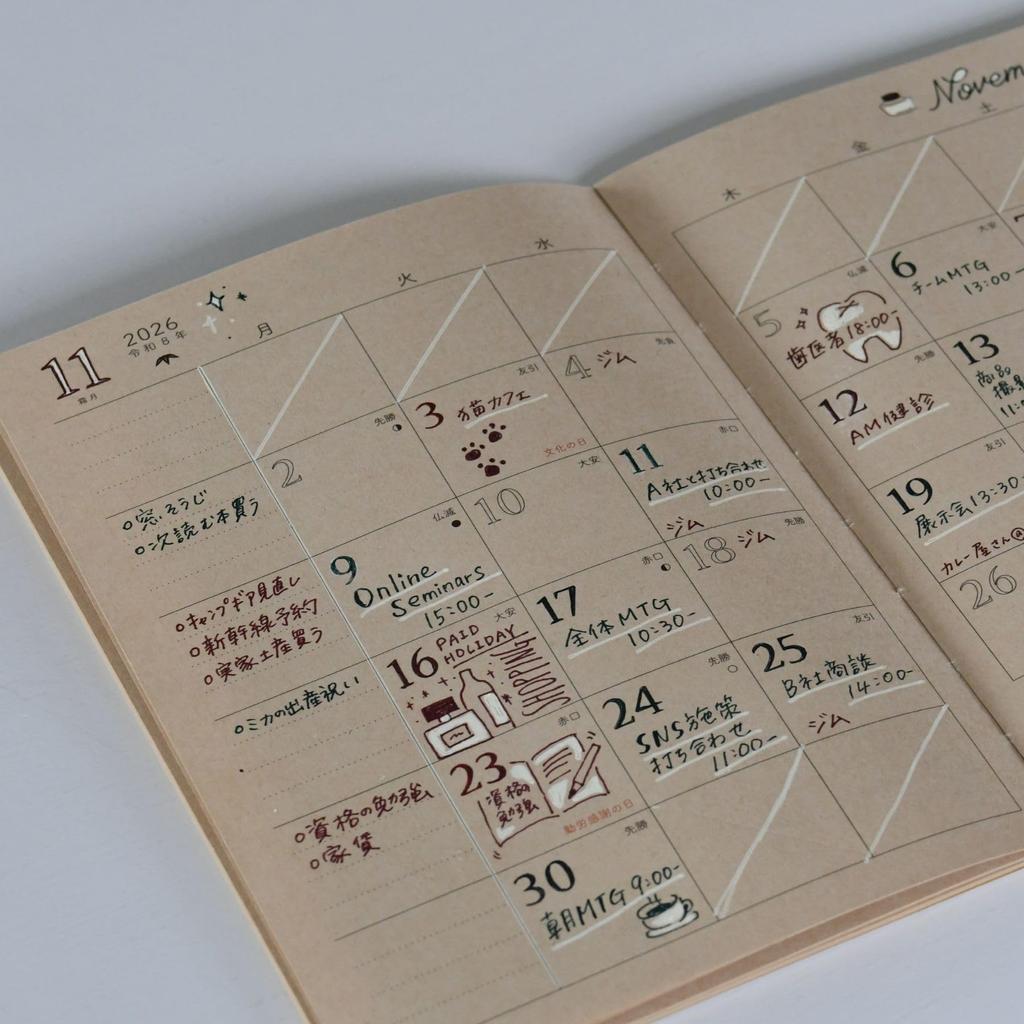 11
霜月
2026
令和8年
月
火
水
木
金
土
2
先勝
3
友引
猫カフェ
文化の日
4
先負
ジム
5
仏滅
歯医者18:00-
6
大安
チームMTG
13:00-
○窓そうじ
○次読む本買う
9
仏滅
Online
Seminars
15:00-
10
大安
11
赤口
A社と打ち合わせ
10:00-
ジム
12
先勝
AM健診
13
○キャンプギア見直し
○新幹線予約
○実家土産買う
16
大安
PAID
HOLIDAY
SHOPPING
17
赤口
全体MTG
10:30-
18
先勝
ジム
19
友引
展示会13:30-
カレー屋さん@
○ミカの出産祝い
23
赤口
資格の
勉強
勤労感謝の日
24
先勝
SNS施策
打ち合わせ
11:00-
25
友引
B社商談
14:00-
ジム
26
○資格の勉強
○家賃
30
先勝
朝MTG 9:00-